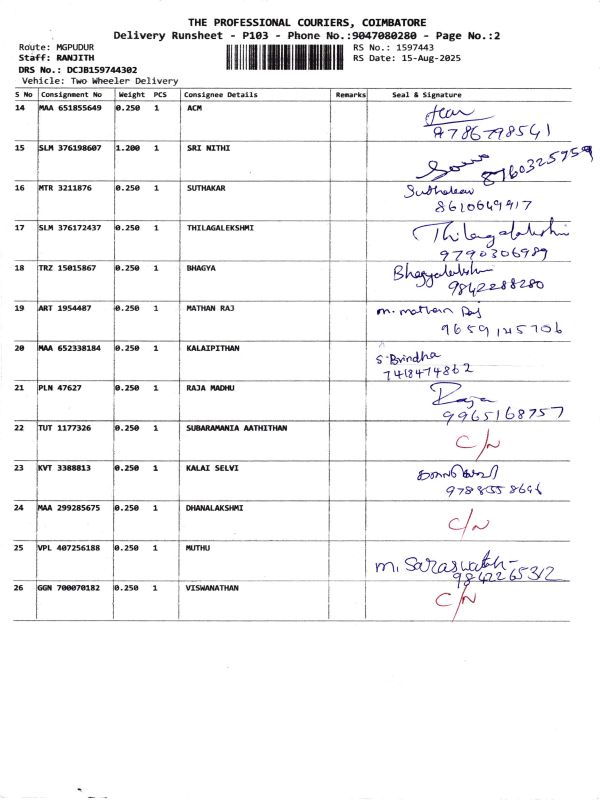 THE PROFESSIONAL COURIERS, COIMBATORE
Delivery Runsheet - P103 - Phone No.:9047080280 - Page No.:2
Route: MGPUDUR
RS No.: 1597443
Staff: RANJITH
RS Date: 15-Aug-2025
DRS No.: DCJB159744302
Vehicle: Two Wheeler Delivery
S No Consignment No Weight PCS Consignee Details Remarks Seal & Signature
14 MAA 651855649 0.250 1 ACM
9786798541
15 SLM 376198607 1.200 1 SRI NITHI
8760325759
16 MTR 3211876 0.250 1 SUTHAKAR Suthakar
8610649917
17 SLM 376172437 0.250 1 THILAGALEKSHMI Thilagalakshmi
9790306989
18 TRZ 15015867 0.250 1 BHAGYA Bhagyalakshmi
9842288280
19 ART 1954487 0.250 1 MATHAN RAJ m. mathan Raj
9659145706
20 MAA 652338184 0.250 1 KALAIPITHAN S. Brindha
7418474862
21 PLN 47627 0.250 1 RAJA MADHU Raja
9965168757
22 TUT 1177326 0.250 1 SUBARAMANIA AATHITHAN C/N
23 KVT 3388813 0.250 1 KALAI SELVI
24 MAA 299285675 0.250 1 DHANALAKSHMI C/N
25 VPL 407256188 0.250 1 MUTHU m. Saraswathi
9842265312
26 GGN 700070182 0.250 1 VISWANATHAN C/N